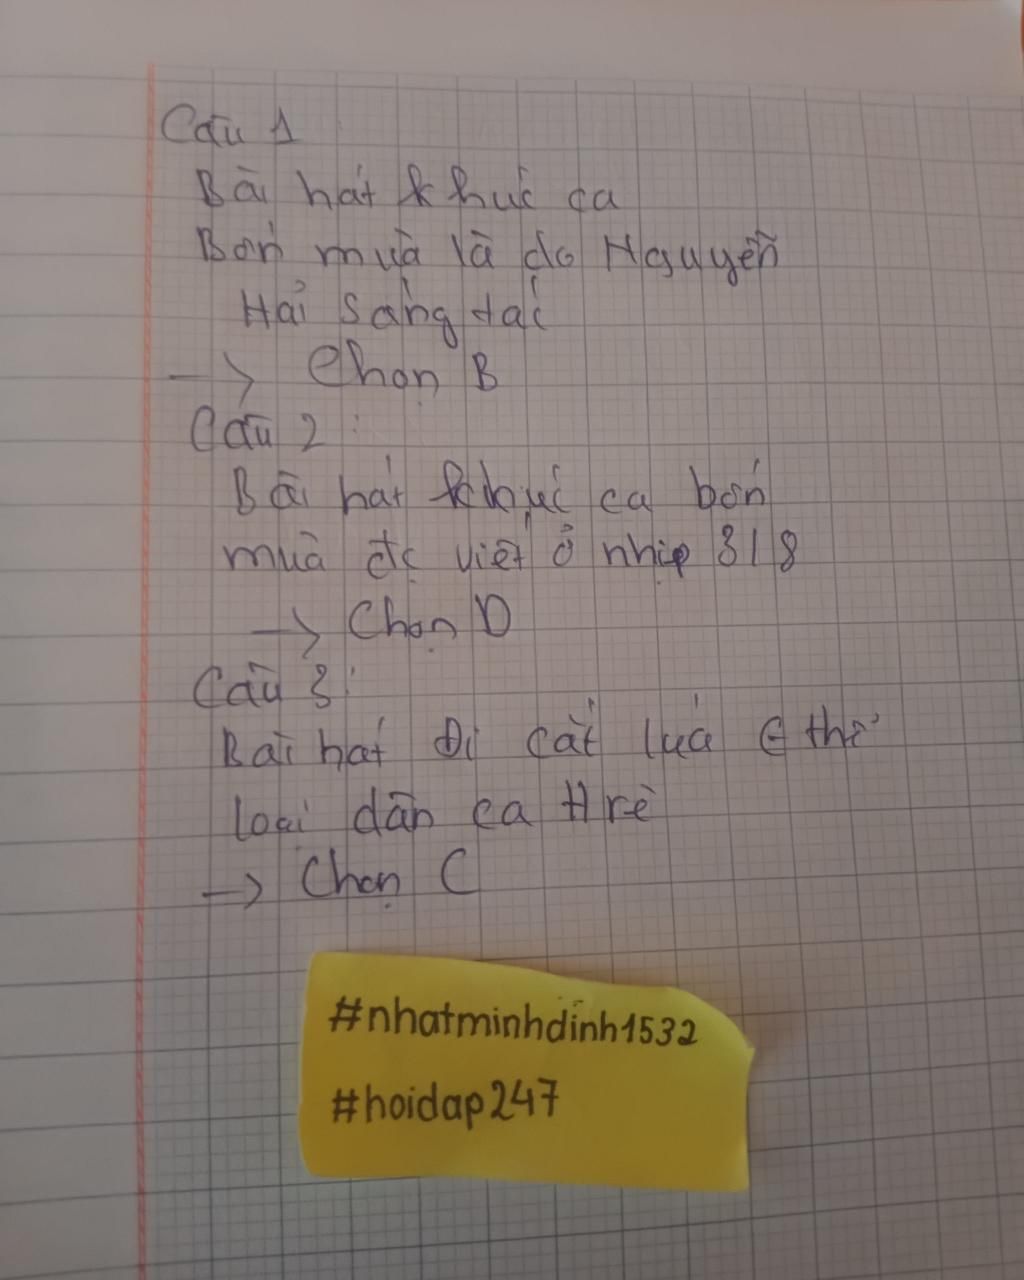 Câu 1
Bài hát khúc ca
Bốn mùa là do Nguyễn
Hải Sáng tác
→ Chọn B
Câu 2 :
Bài hát khúc ca bốn
mùa đc viết ở nhịp 3/8
→ Chọn D
Câu 3 :
Bài hát Đi cắt lúa ∈ thể
loại dân ca Hrê
→ Chọn C
#nhatminhdinh1532
#hoidap247